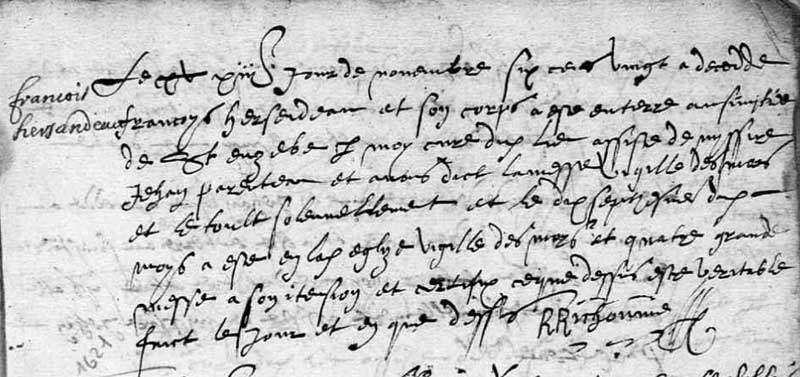 francois
hersandeau
Le xiiiie Jour de novembre six cens vingt a decedde
francoys hersendeau et son corps a este enterre au simitiere
de St euzebe p moy cure dud lie assiste de myssire
Jehan parenteau et avons dict la messe vigille des mors
et le toult solennellement et le dix septhesme dud
moys a este en lad eglyze vigille des mors et quatre grande
messe a son itension et certiffy ce que dessus estre veritable
faict les Jour et en que dessus RRichomme
1621